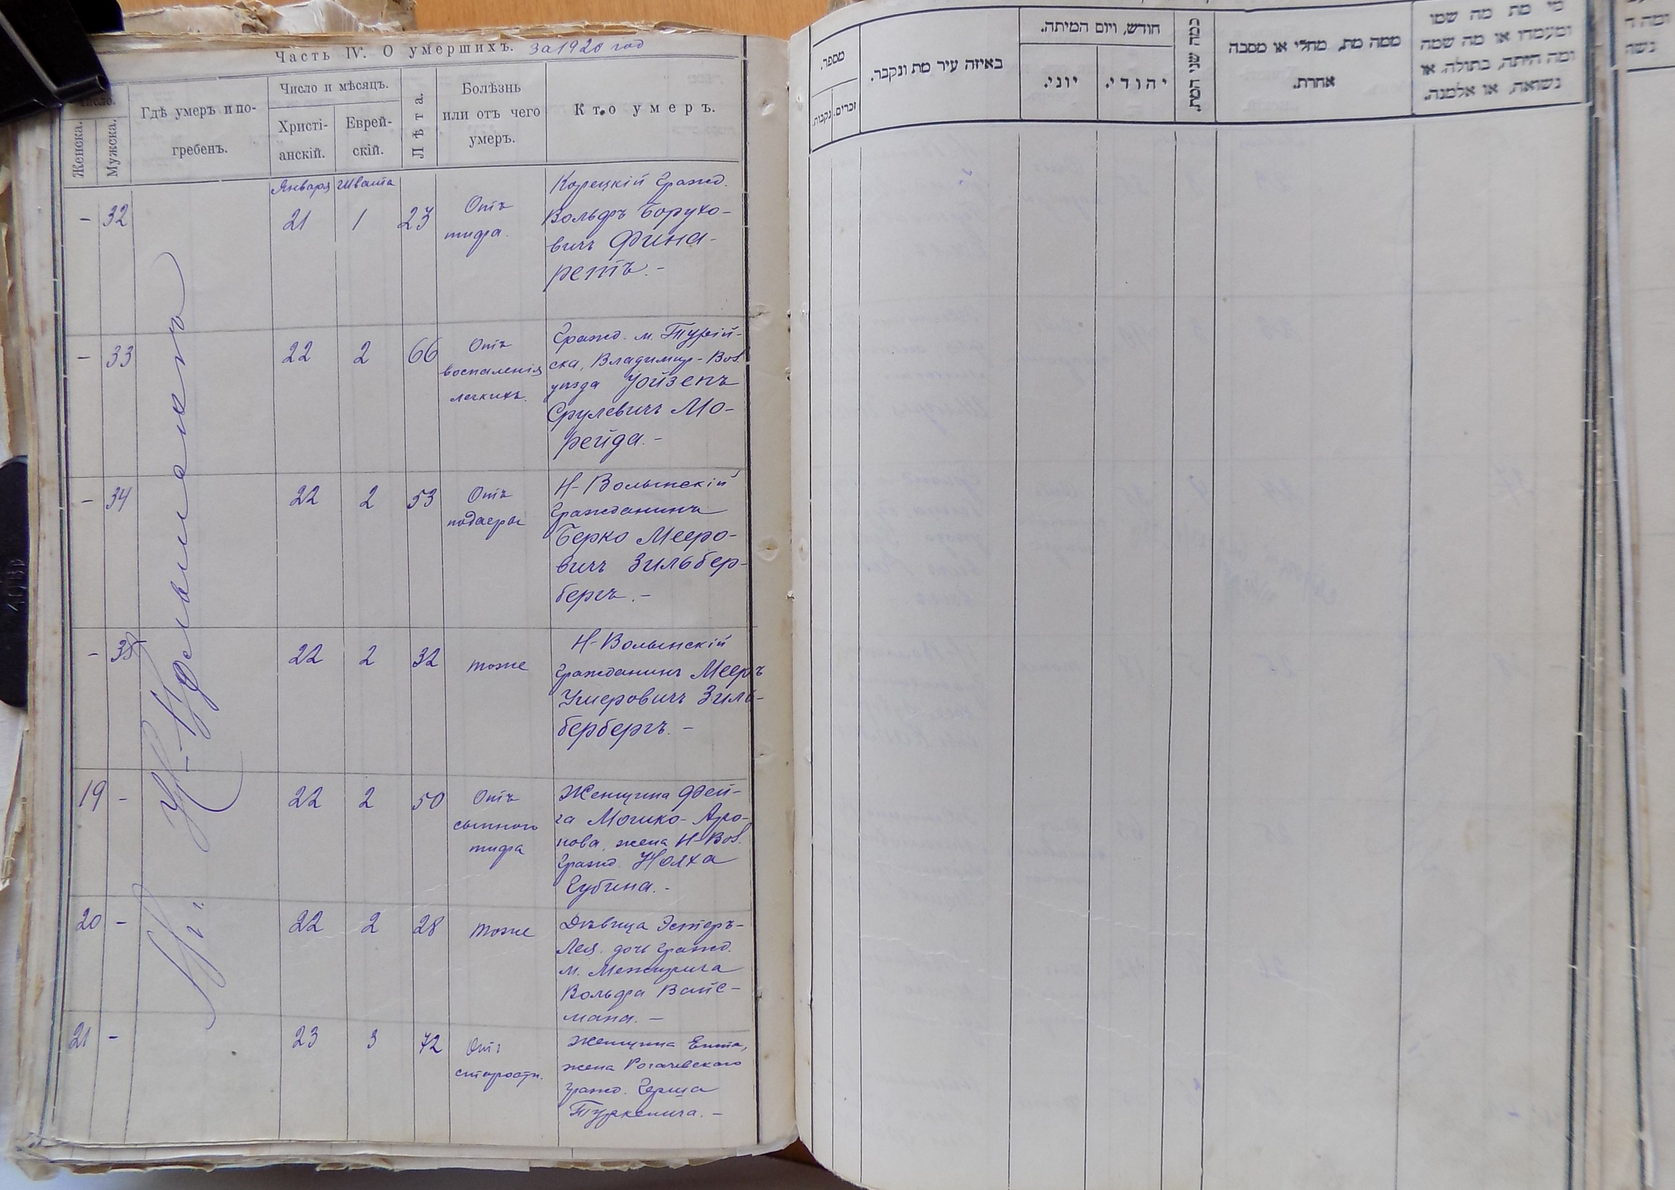 Часть IV. О умершихъ. за 1920 год
Число.
Женска.
Мужска.
Гдѣ умеръ и по-
гребенъ.
Число и мѣсяцъ.
Христі-
анскій.
Еврей-
скій.
Лѣта.
Болѣзнь
или отъ чего
умеръ.
Кто умеръ.
Января Швата
- 32 21 1 23
Отъ
тифа.
Корецкій гражд.
Вольфъ Борухо-
вичъ Фина-
ретъ. -
- 33 22 2 66
Отъ
воспаленія
легкихъ.
Гражд. м. Турій-
ска, Владимир-Вол
уѣзда Уойзепъ
Срулевичъ Мо-
рейда. -
- 34 22 2 53
Отъ
подагры
Н-Волынскій
Гражданинъ
Берко Мееро-
вичъ Зильбер-
бергъ. -
- 35 22 2 32
тоже
Н-Волынскій
Гражданинъ Мееръ
Умеровичъ Зиль-
бербергъ. -
19 - 22 2 50
Отъ
сыпного
тифа
Женщина Фей-
га Мошко-Аро-
нова, жена Н-Вол.
Гражд. Нояха
Губина. -
20 - 22 2 28
тоже
Дѣвица Эстеръ-
Лея, дочь гражд.
м. Межирича
Вольфа Вайс-
мана. -
21 - 23 3 72
Отъ
старости.
Женщина Ента,
жена Рогачевского
гражд. Герша
Туркенича. -
מספר.
זכרים.
נקבות.
באיזה עיר מת ונקבר.
חודש, ויום המיתה.
יוני.
יהודי.
כמה שני המת.
ממה מת, מחלי או מסבה
אחרת.
מי מת מה שמו
ומעמדו או מה שמה
ומה היתה, בתולה או
נשואה, או אלמנה.